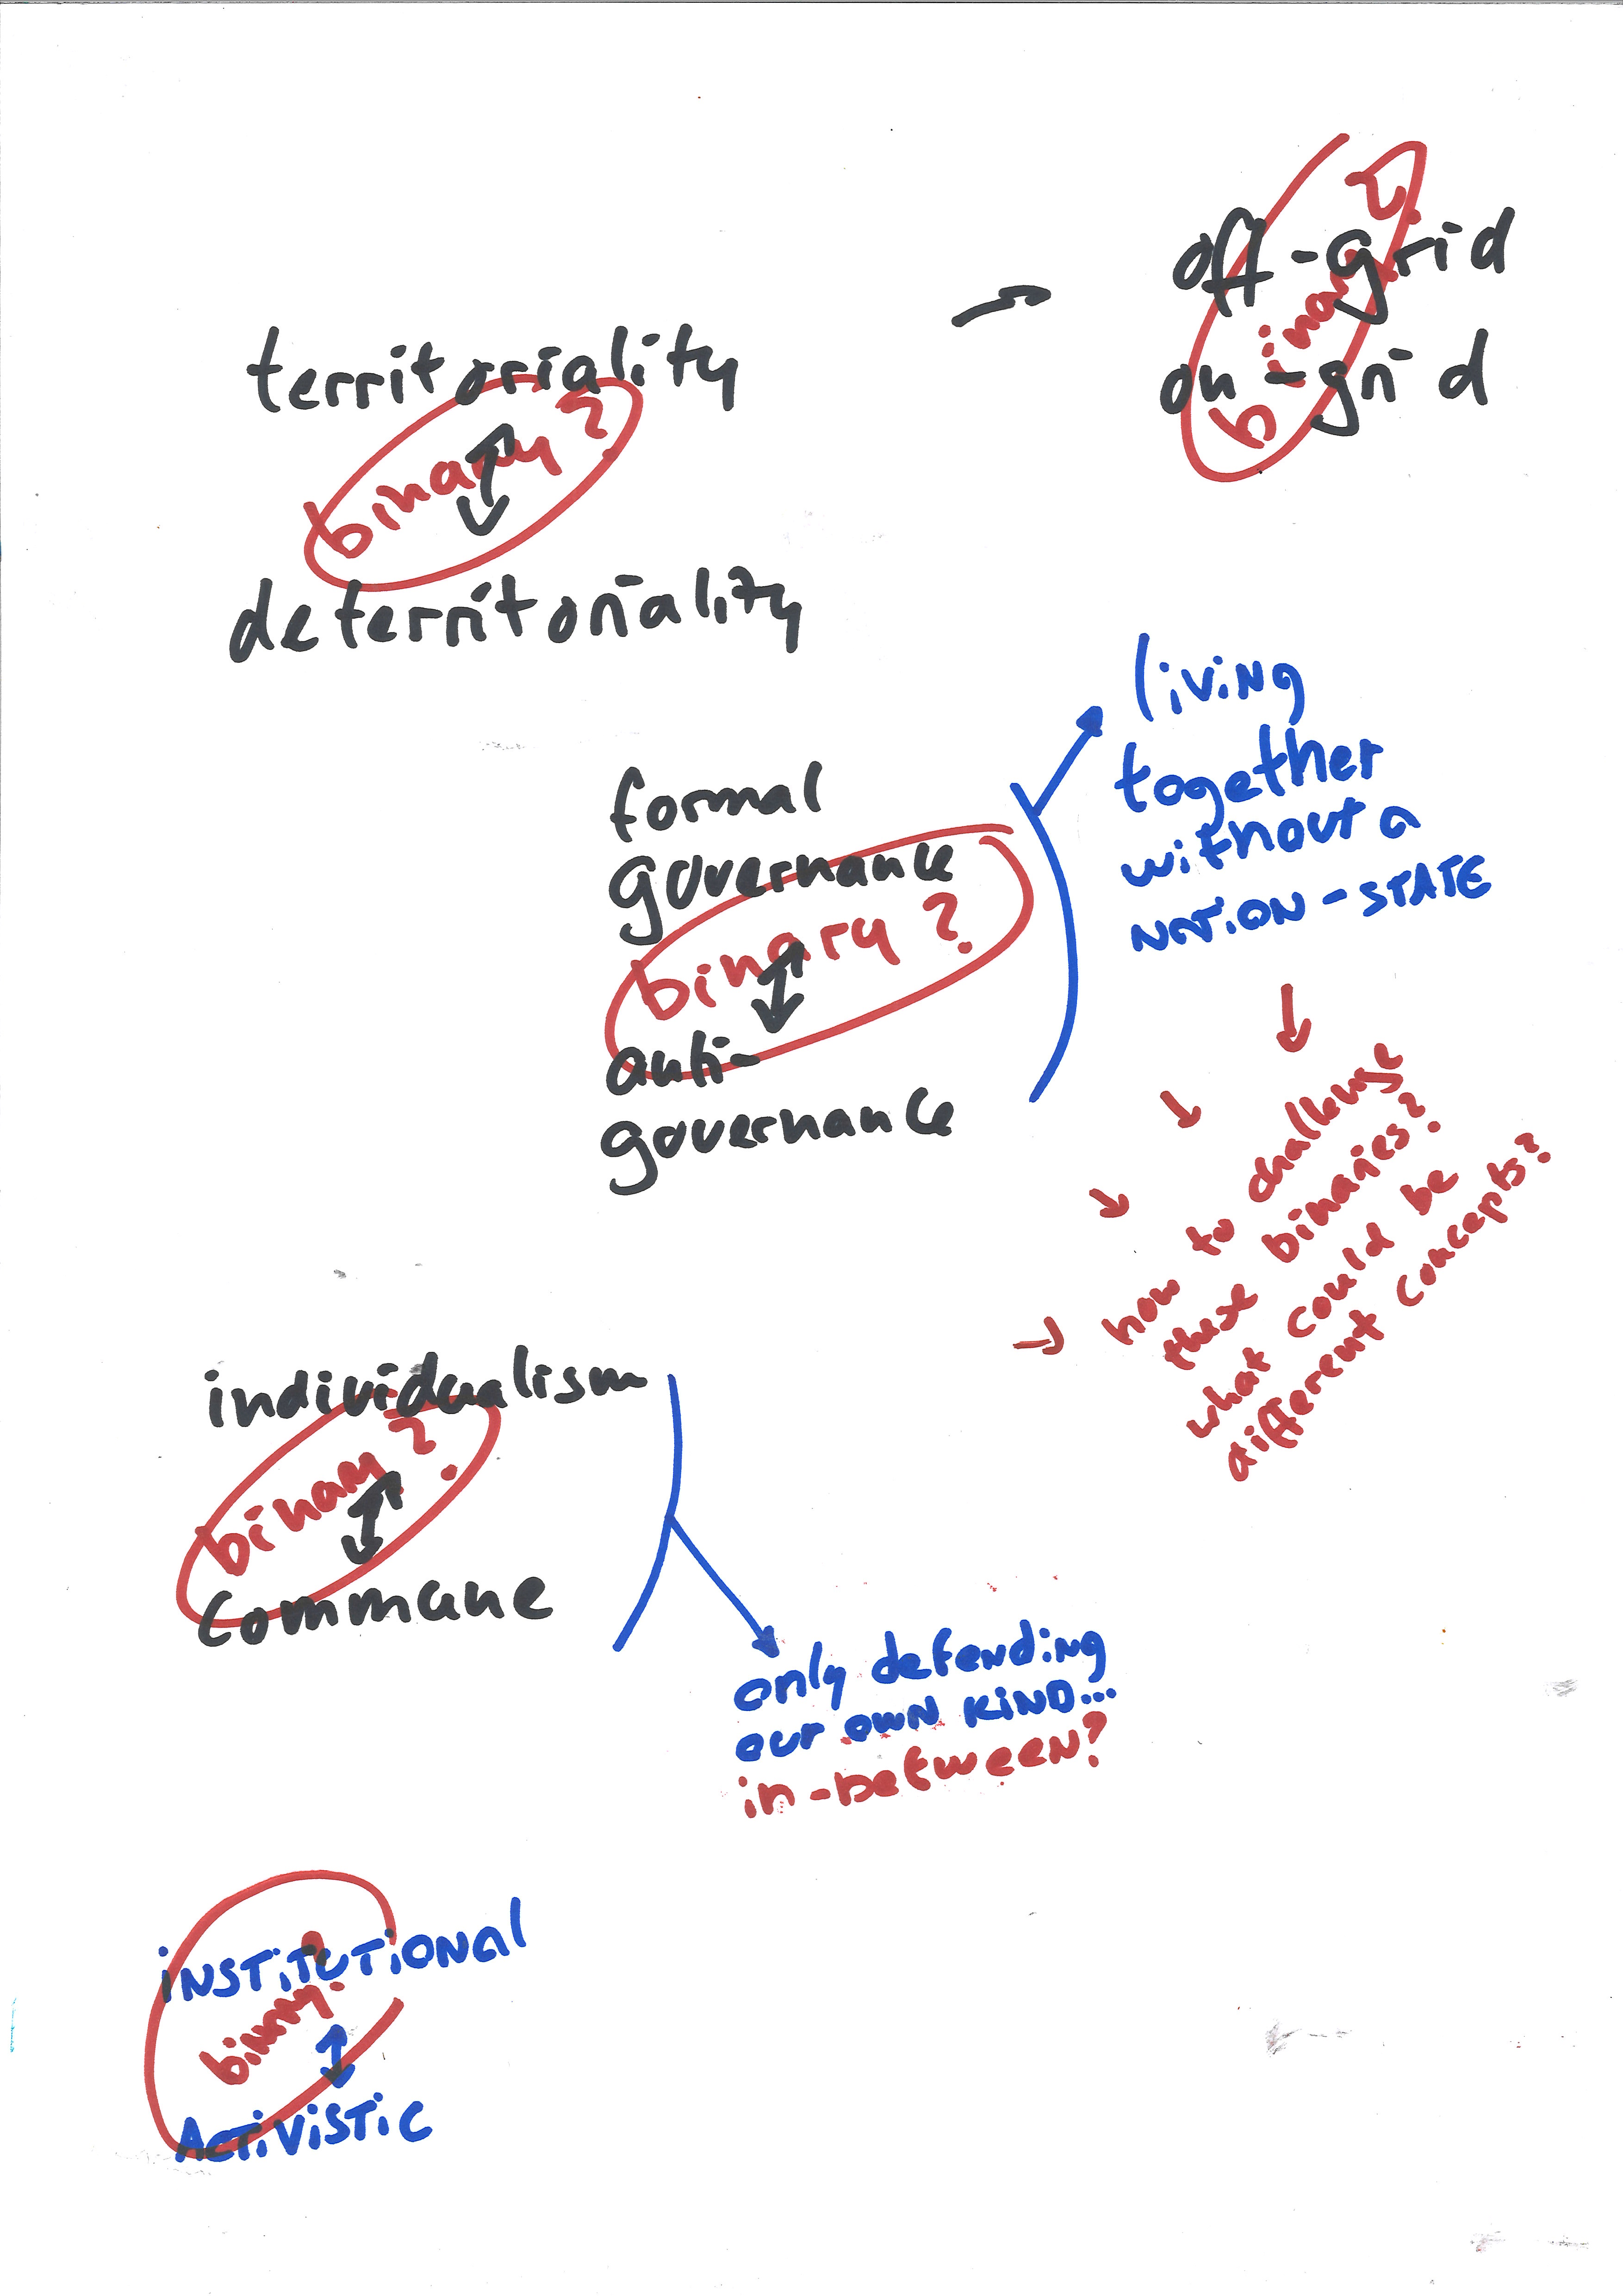 off-grid
binary?
on-grid
territoriality
binary?
deterritoriality
living
together
without a
NATION-STATE
formal
governance
binary?
anti-
governance
how to challenge
these binaries?
what could be
different concepts?
individualism
binary?
commune
only defending
our own kind...
in-between?
iNSTiTUTiONAl
binary?
ActiViSTiC